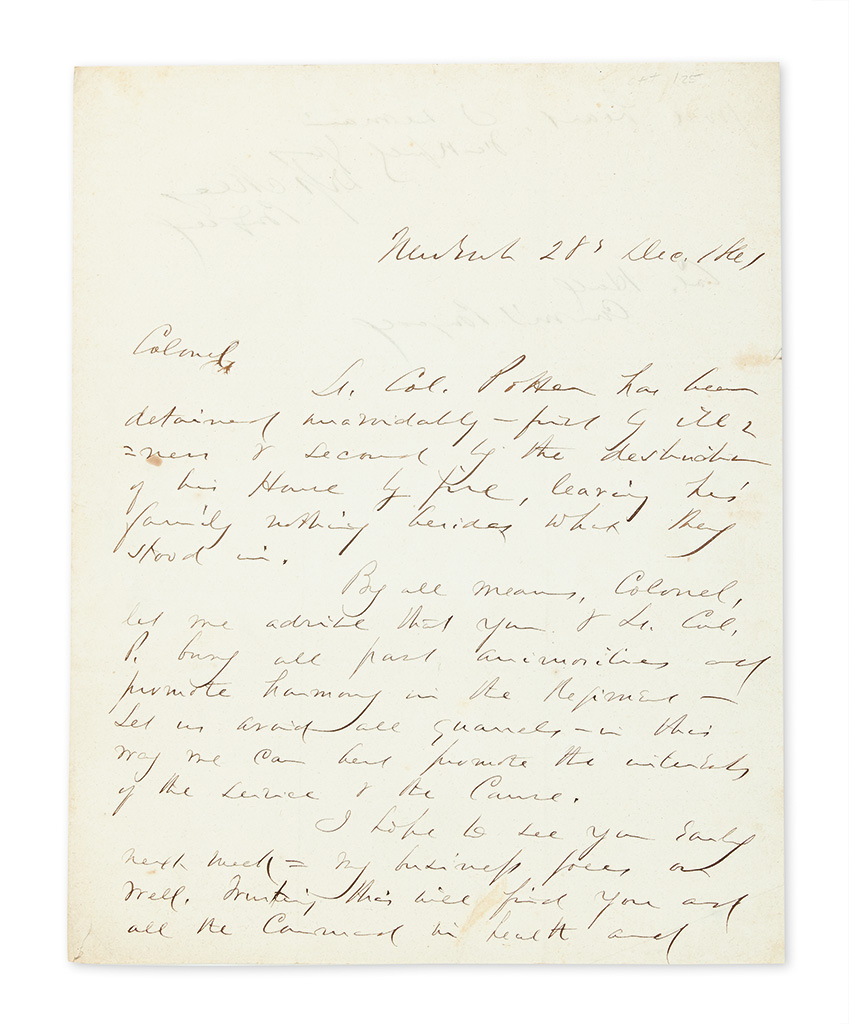 New York 28th Dec. 1861
Colonel,
Lt. Col. Potter has been
detained unavoidably - first by ill
=ness & second by the destruction
of his House by fire, leaving his
family nothing besides what they
stood in.
By all means, Colonel,
let me advise that you & Lt. Col.
P. bury all past animosities and
promote harmony in the Regiment -
Let us avoid all quarrels - in this
way we can best promote the interests
of the service & the Cause.
I hope to see you early
next week = my business goes on
well. Trusting this will find you and
all the Command in health and